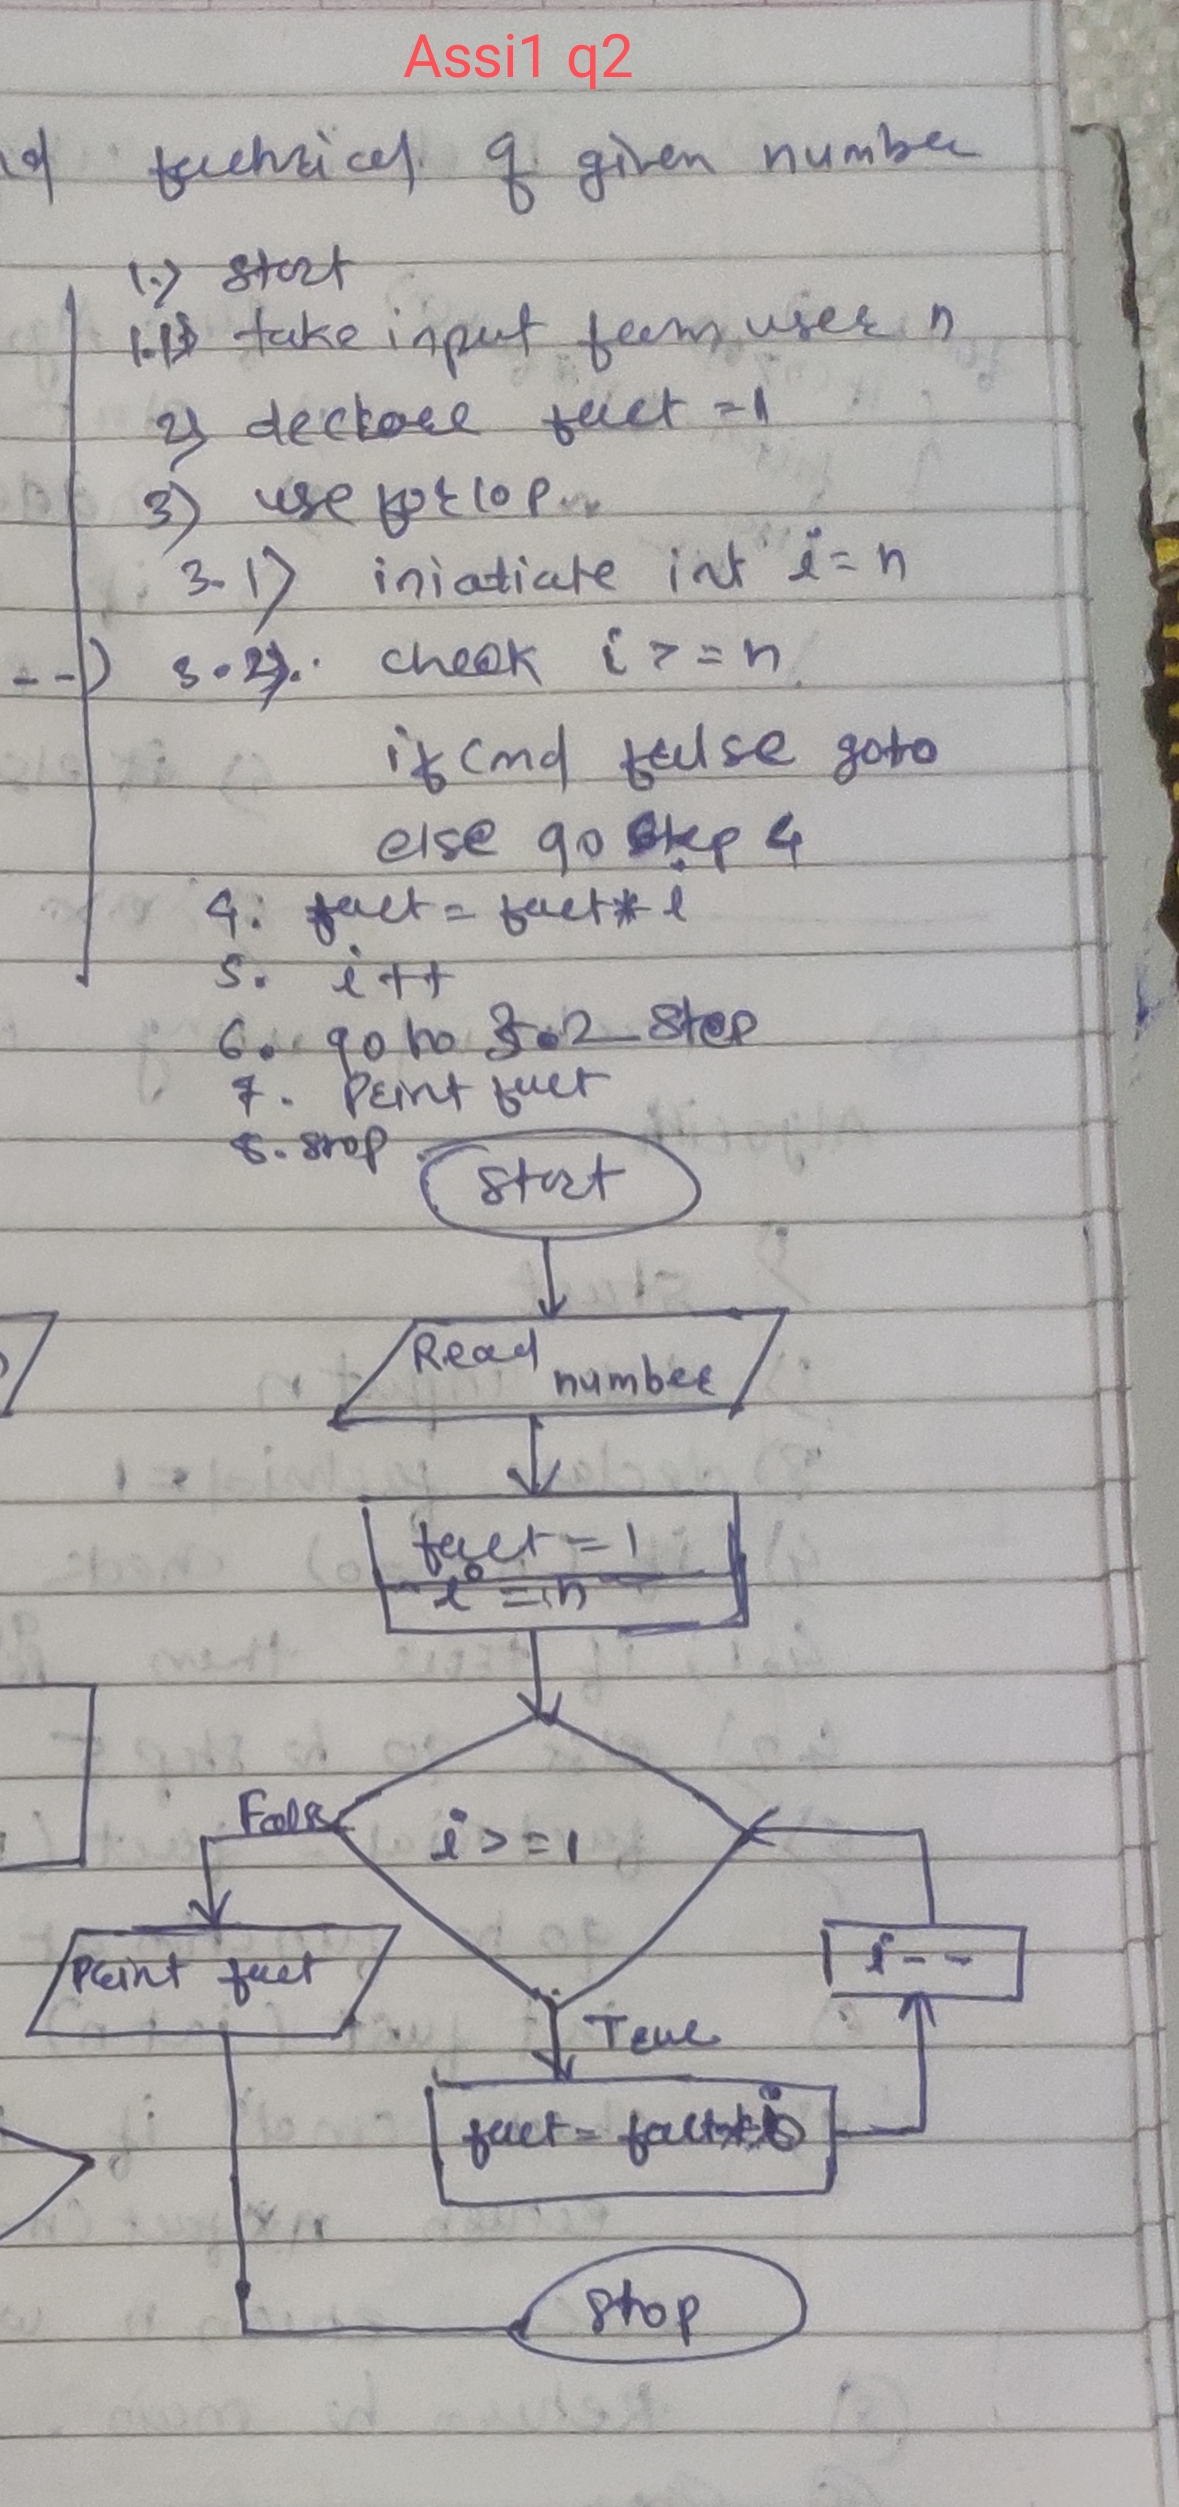 Assi1 q2
given number
1.) Start
1.1) take input from user n
2) declare fact = 1
3) use for lop
3.1) iniatiate int i = n
3.2). check i >= n
if cnd false goto
else go step 4
4. fact = fact * i
5. i++
6. go to 3.2 step
7. Print fact
8. stop
Start
Read number
fact = 1
i = n
False
i >= 1
Print fact
i--
True
fact = fact * i
Stop